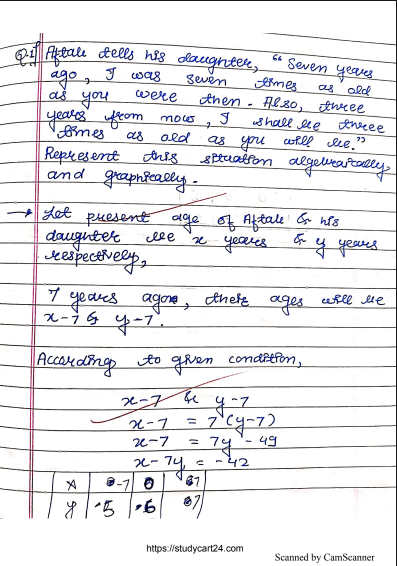 Q.1] Aftab tells his daughter, "Seven years
ago, I was seven times as old
as you were then. Also, three
years from now, I shall be three
times as old as you will be."
Represent this situation algebraically
and graphically.
→ Let present age of Aftab & his
daughter be x years & y years
respectively,
7 years ago, their ages will be
x-7 & y-7.
According to given condition,
x-7 & y-7
x-7 = 7(y-7)
x-7 = 7y - 49
x-7y = -42
x -7 0 7
y 5 6 7
https://studycart24.com
Scanned by CamScanner